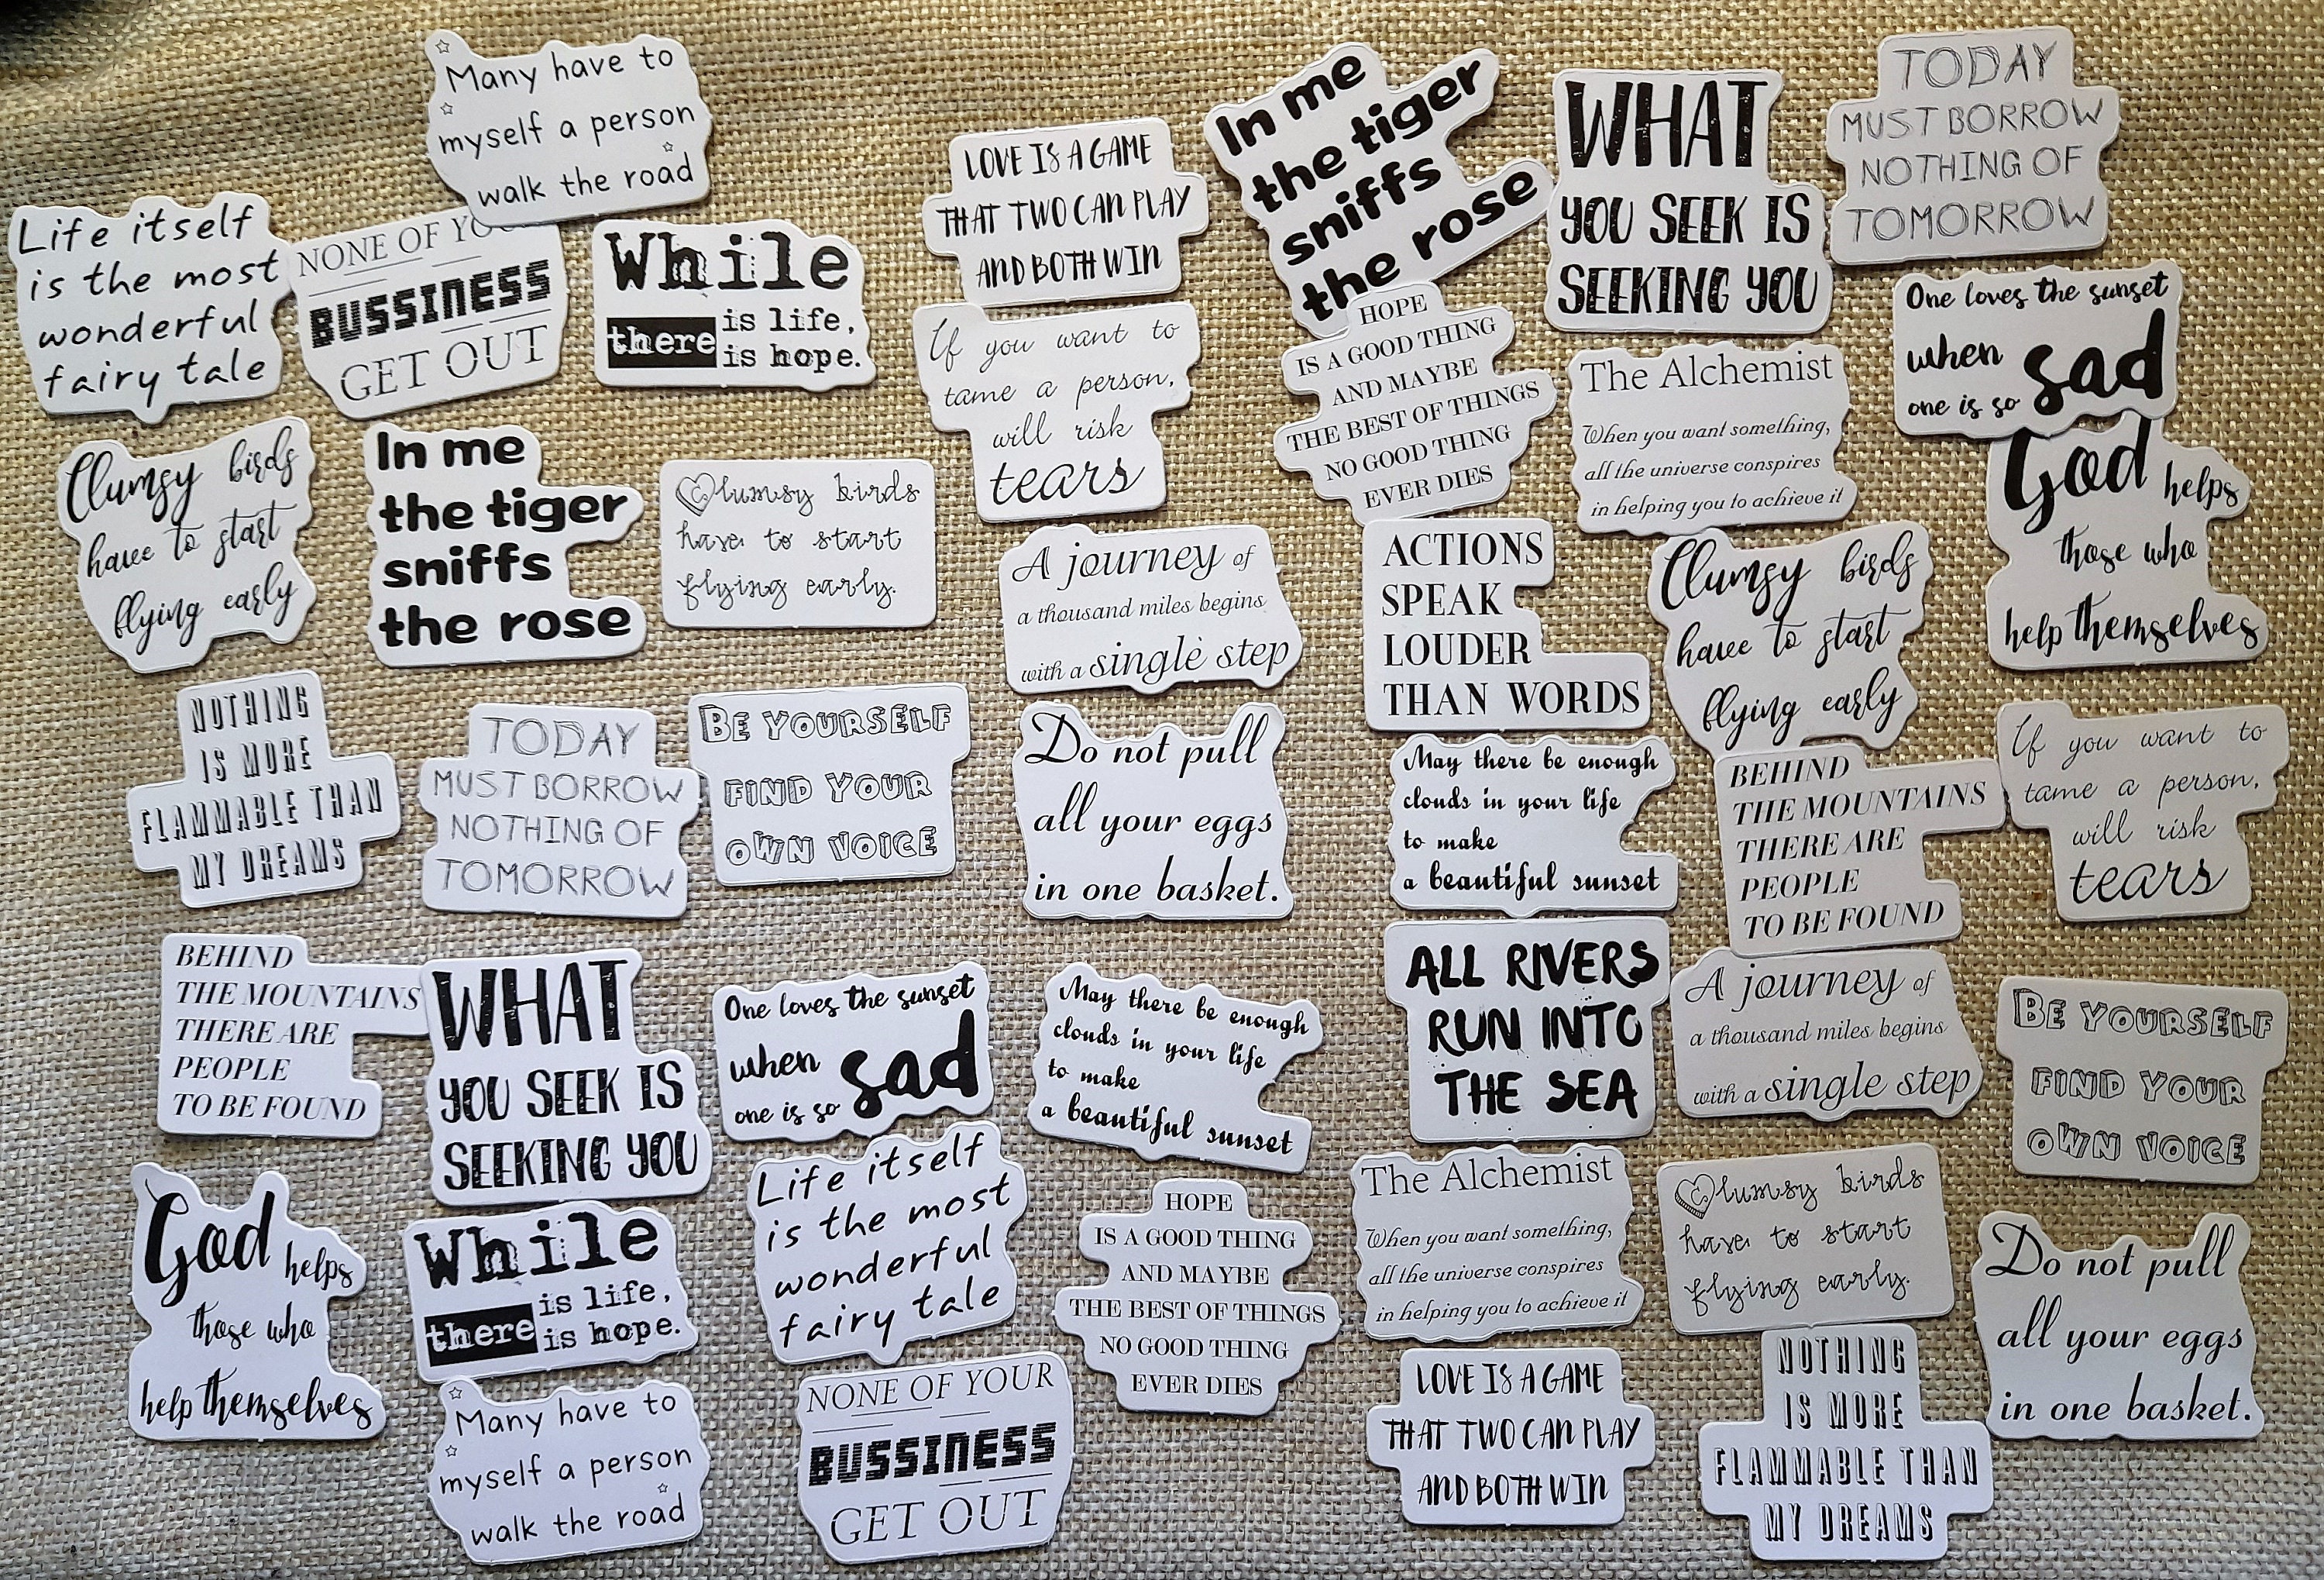 Many have to
myself a person
walk the road
Life itself
is the most
wonderful
fairy tale
NONE OF
BUSSINESS
GET OUT
While
there is life,
is hope.
LOVE IS A GAME
THAT TWO CAN PLAY
AND BOTH WIN
In me
the tiger
sniffs
the rose
WHAT
YOU SEEK IS
SEEKING YOU
TODAY
MUST BORROW
NOTHING OF
TOMORROW
If you want to
tame a person,
will risk
tears
HOPE
IS A GOOD THING
AND MAYBE
THE BEST OF THINGS
NO GOOD THING
EVER DIES
The Alchemist
When you want something,
all the universe conspires
in helping you to achieve it
One loves the sunset
when sad
one is so
Clumsy birds
have to start
flying early
In me
the tiger
sniffs
the rose
Clumsy birds
have to start
flying early.
A journey of
a thousand miles begins
with a single step
ACTIONS
SPEAK
LOUDER
THAN WORDS
Clumsy birds
have to start
flying early
God helps
those who
help themselves
NOTHING
IS MORE
FLAMMABLE THAN
MY DREAMS
TODAY
MUST BORROW
NOTHING OF
TOMORROW
BE YOURSELF
FIND YOUR
OWN VOICE
Do not pull
all your eggs
in one basket.
May there be enough
clouds in your life
to make
a beautiful sunset
BEHIND
THE MOUNTAINS
THERE ARE
PEOPLE
TO BE FOUND
If you want to
tame a person,
will risk
tears
BEHIND
THE MOUNTAINS
THERE ARE
PEOPLE
TO BE FOUND
WHAT
YOU SEEK IS
SEEKING YOU
One loves the sunset
when sad
one is so
May there be enough
clouds in your life
to make
a beautiful sunset
ALL RIVERS
RUN INTO
THE SEA
A journey of
a thousand miles begins
with a single step
BE YOURSELF
FIND YOUR
OWN VOICE
God helps
those who
help themselves
While
there is life,
is hope.
Life itself
is the most
wonderful
fairy tale
HOPE
IS A GOOD THING
AND MAYBE
THE BEST OF THINGS
NO GOOD THING
EVER DIES
The Alchemist
When you want something,
all the universe conspires
in helping you to achieve it
Clumsy birds
have to start
flying early.
Do not pull
all your eggs
in one basket.
Many have to
myself a person
walk the road
NONE OF YOUR
BUSSINESS
GET OUT
LOVE IS A GAME
THAT TWO CAN PLAY
AND BOTH WIN
NOTHING
IS MORE
FLAMMABLE THAN
MY DREAMS